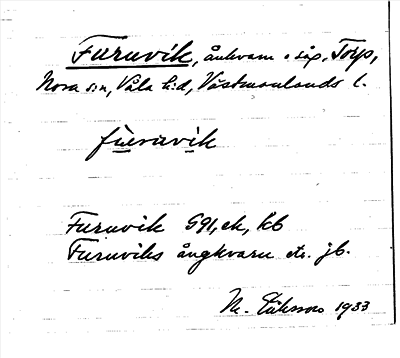 Furuvik, ånkvarn o såg, Torp,
Nora s:n, Våla h:d, Västmanlands l.
fùruvik
Furuvik G91, ek, kb
Furuviks ångkvarn etc. jb.
M. Eriksson 1933